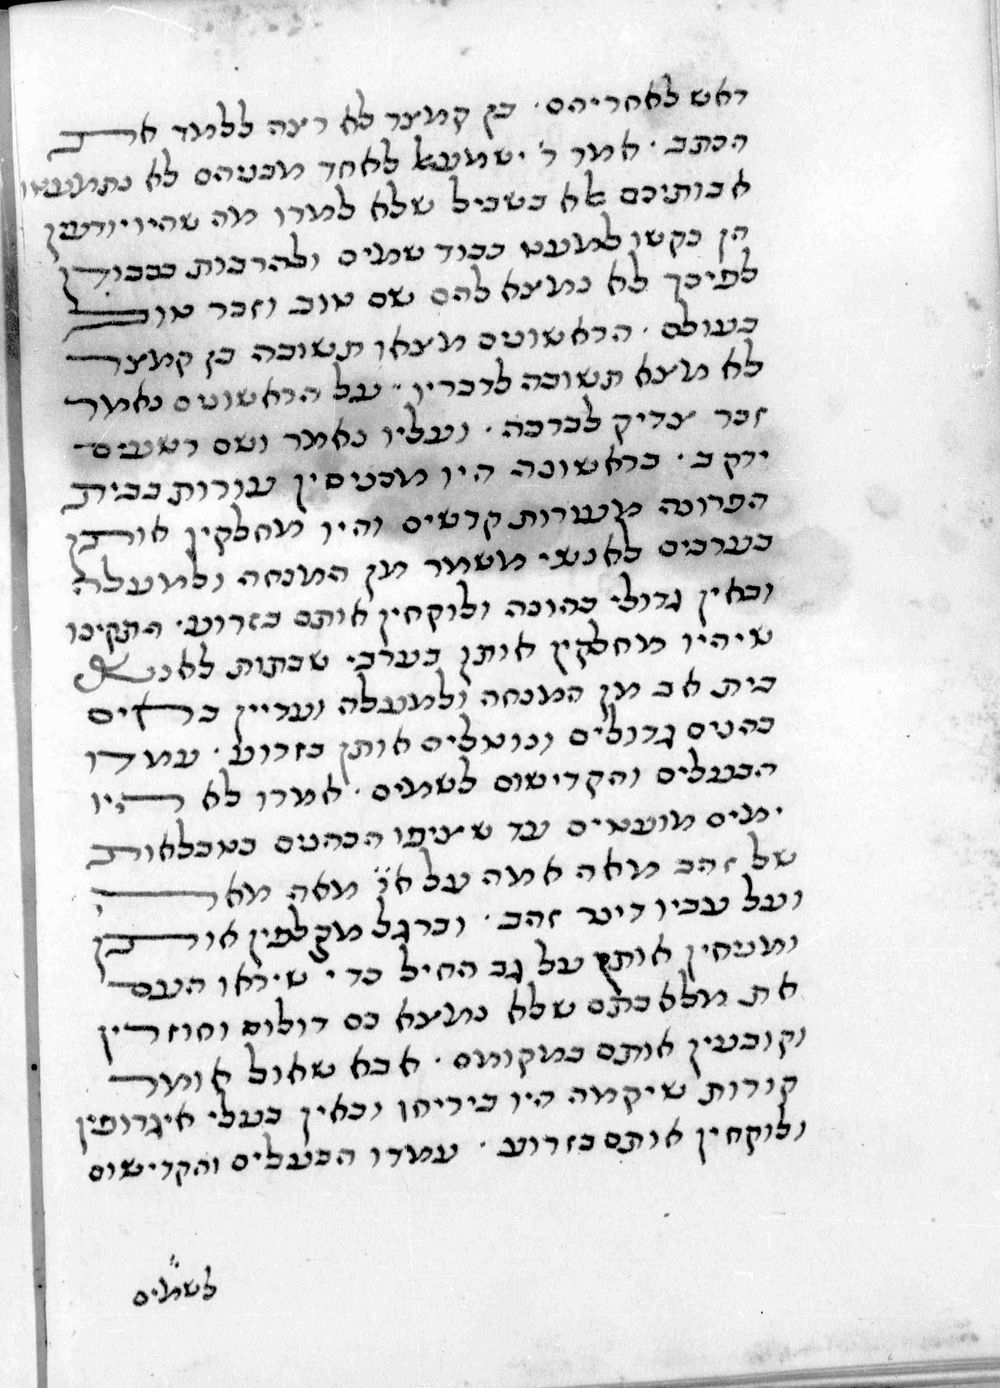 ראש לאחריהם · בן קמצר לא רצה ללמד את
הכתב · אמר ר' ישמעאל לאחד מבניהם לא נתמעטו
אבותיכם אלא בשביל שלא למדו מה שהיו יודעין
הן בקשו למעט כבוד שמים ולהרבות בכבודן
לפיכך לא נמצא להם שם טוב וזכר טוב
בעולם · הראשונים מצאו תשובה בן קמצר
לא מצא תשובה לדבריו · על הראשונים נאמר
זכר צדיק לברכה · ועליו נאמר ושם רשעים
ירקב · בראשונה היו מכניסין עורות בבית
הפרוה מעורות קדשים והיו מחלקין אותן
בערבים לאנשי משמר מן המנחה ולמעלה
ובאין גדולי כהונה ולוקחין אותם בזרוע · התקינו
שיהיו מחלקין אותן בערבי שבתות לאנשי
בית אב מן המנחה ולמעלה ועדיין באים
כהנים גדולים ונוטלים אותן בזרוע · עמדו
הבעלים והקדישום לשמים · אמרו לא היו
ימים מועטים עד שציפו הכהנים בטבלאות
של זהב מאה אמה על א"א מאה מאה
ועל עביו דינר זהב · וברגל מקלפין אותן
ומניחין אותן על גב החיל כדי שיראו העם
את מלאכתם שלא נמצא בם דולום וחוזרין
וקובעין אותם במקומם · אבא שאול אומר
קורות שיקמה היו ביריחו ובאין בעלי איגרופין
ולוקחין אותם בזרוע · עמדו הבעלים והקדישום
לשמים